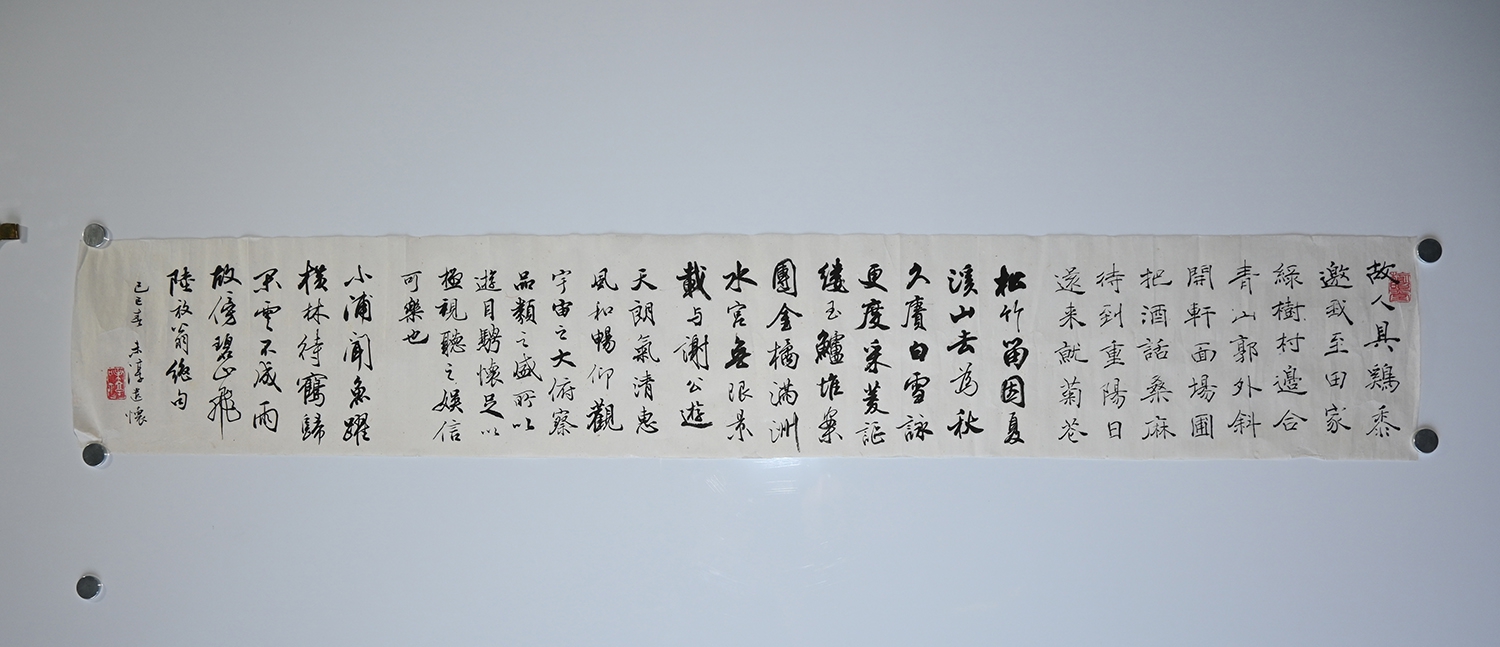 故人具鷄黍
邀我至田家
綠樹村邊合
青山郭外斜
開軒面場圃
把酒話桑麻
待到重陽日
還来就菊花
松竹留因夏
溪山去為秋
久賡白雪詠
更度采菱謳
縷玉鱸堆案
團金橘滿洲
水宮無限景
載与謝公遊
天朗氣清惠
風和暢仰觀
宇宙之大俯察
品類之盛所以
遊目騁懷足以
極視聽之娛信
可樂也
小浦聞魚躍
橫林待鶴歸
閑雲不成雨
故傍碧山飛
陸放翁絕句
己巳春 淳遣懷